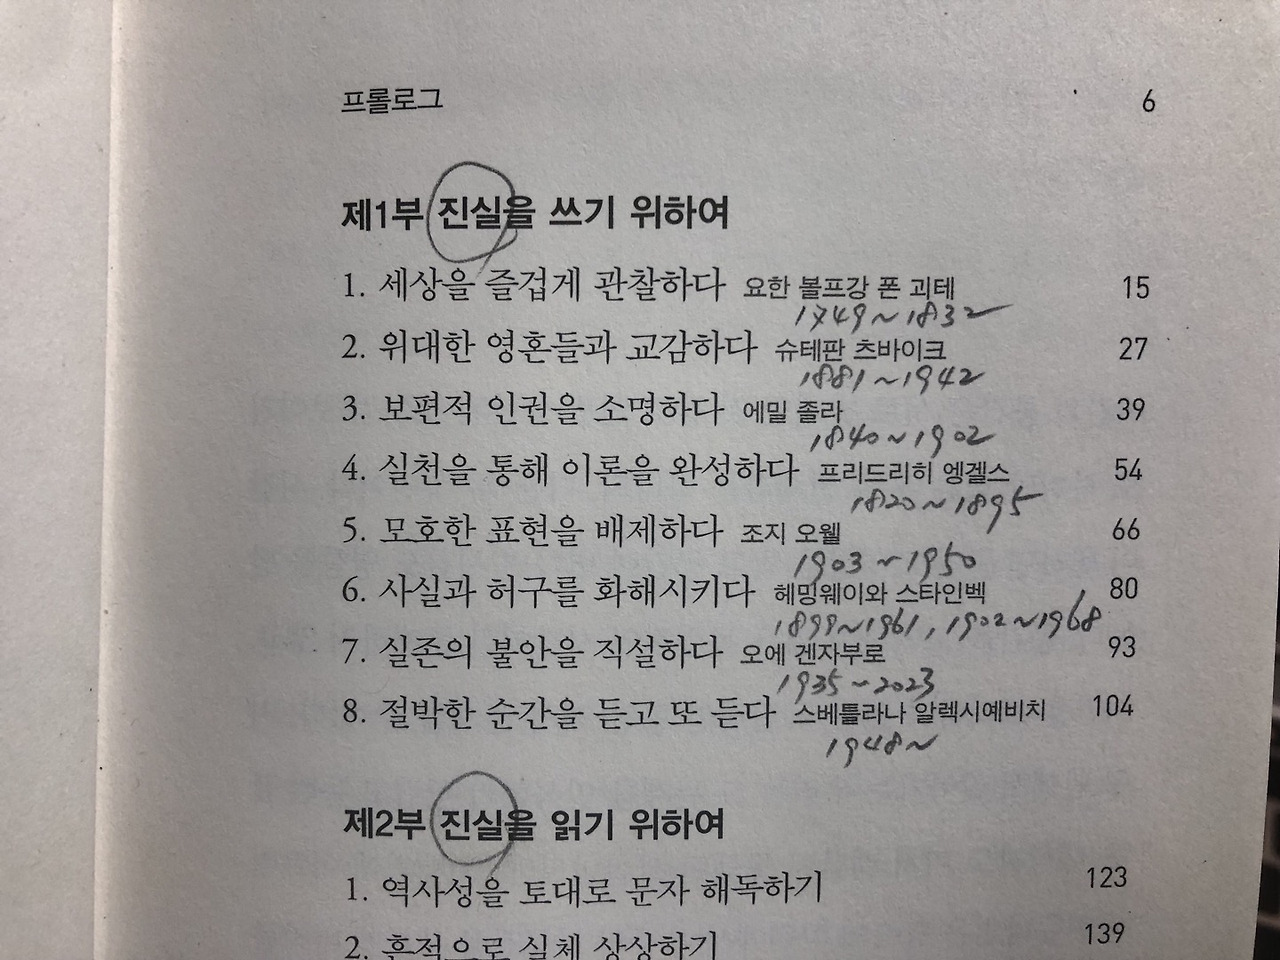 프롤로그 6
제1부 진실을 쓰기 위하여
1. 세상을 즐겁게 관찰하다 요한 볼프강 폰 괴테 15
1749~1832
2. 위대한 영혼들과 교감하다 슈테판 츠바이크 27
1881~1942
3. 보편적 인권을 소명하다 에밀 졸라 39
1840~1902
4. 실천을 통해 이론을 완성하다 프리드리히 엥겔스 54
1820~1895
5. 모호한 표현을 배제하다 조지 오웰 66
1903~1950
6. 사실과 허구를 화해시키다 헤밍웨이와 스타인벡 80
1899~1961, 1902~1968
7. 실존의 불안을 직설하다 오에 겐자부로 93
1935~2023
8. 절박한 순간을 듣고 또 듣다 스베틀라나 알렉시예비치 104
1948~
제2부 진실을 읽기 위하여
1. 역사성을 토대로 문자 해독하기 123
2. 흔적으로 실체 상상하기 139